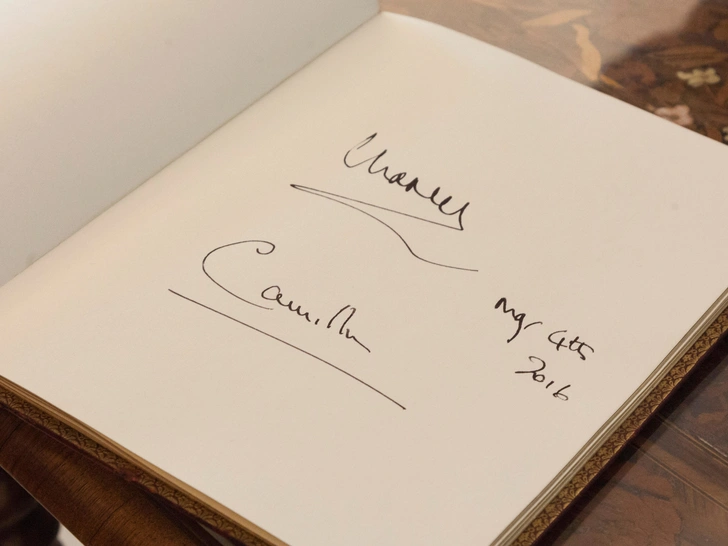 Charles
Camilla
Mar 4th
2016